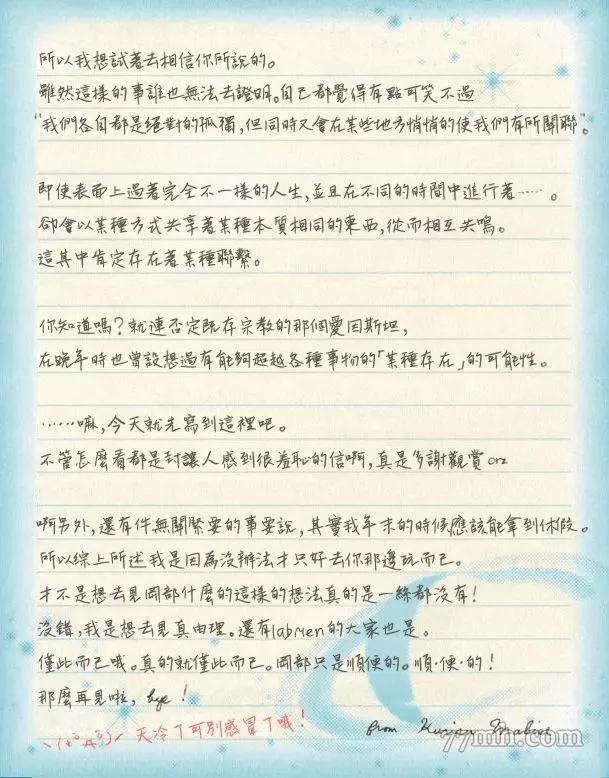 所以我想試著去相信你所說的。
雖然這樣的事誰也無法去證明。自己都覺得有點可笑不過
"我們各自都是絕對的孤獨，但同時又會在某些地方悄悄的使我們有所關聯"。
即使表面上過著完全不一樣的人生，並且在不同的時間中進行著……。
卻會以某種方式共享著某種本質相同的東西，從而相互共鳴。
這其中肯定存在著某種聯繫。
你知道嗎？就連否定既存宗教的那個愛因斯坦，
在晚年時也曾設想過有能夠超越各種事物的「某種存在」的可能性。
……嘛，今天就先寫到這裡吧。
不管怎麼看都是封讓人感到很羞恥的信啊，真是多謝觀賞orz
啊另外，還有件無關緊要的事要說，其實我年末的時候應該能拿到休假。
所以綜上所述我是因為沒辦法才只好去你那邊玩而已。
才不是想去見岡部什麼的這樣的想法真的是一絲都沒有！
沒錯，我是想去見真由理。還有labMen的大家也是。
僅此而已哦。真的就僅此而已。岡部只是順便的。順·便·的！
那麼再見啦，bye！
天冷了可別感冒了哦！
from Kurisu Makise
77mh.com